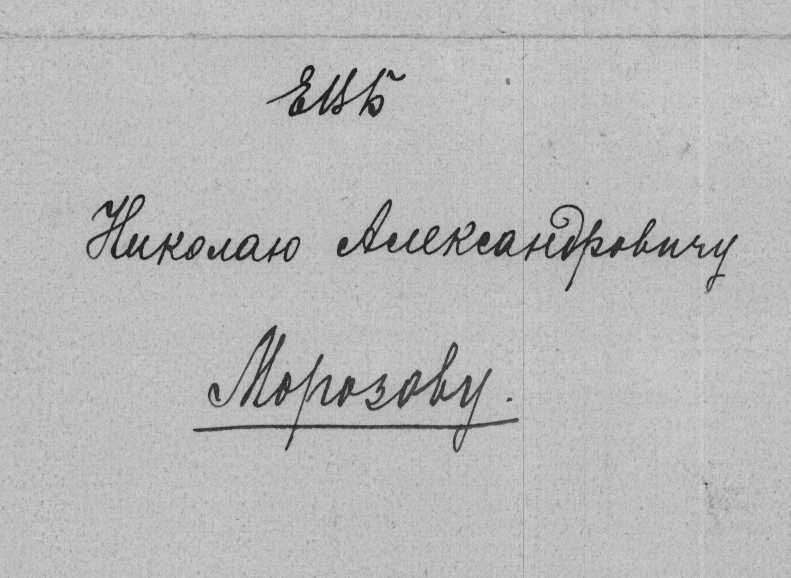 ЕВБ
Николаю Александровичу
Морозову.